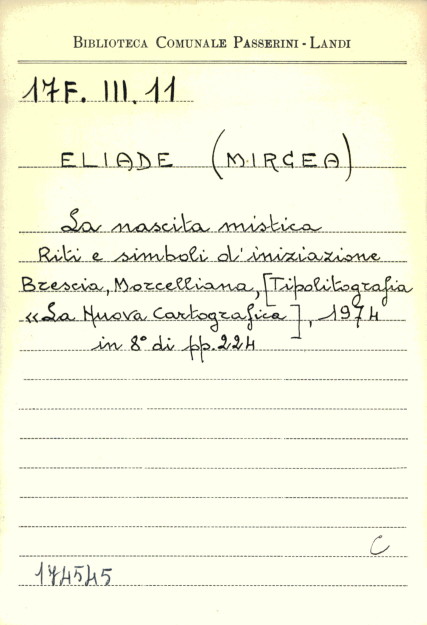 BIBLIOTECA COMUNALE PASSERINI - LANDI
17F. III. 11
ELIADE (MIRCEA)
La nascita mistica
Riti e simboli d'iniziazione
Brescia, Morcelliana, [Tipolitografia
«La Nuova Cartografica], 1974
in 8° di pp. 224
C
174545